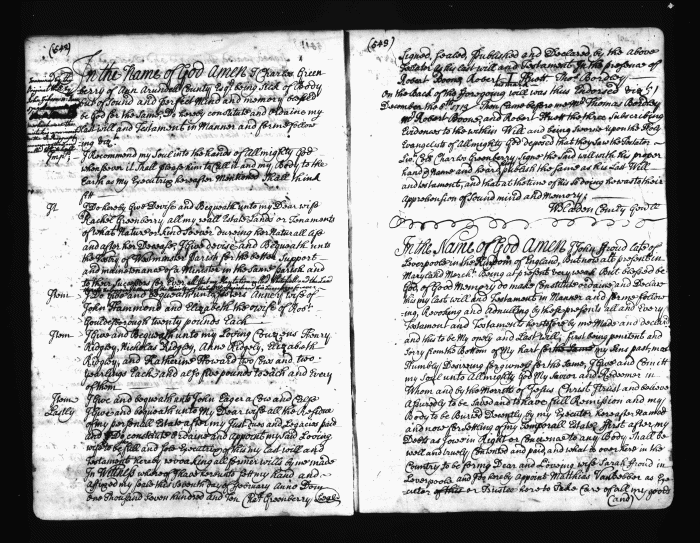 (548)
In the Name of God Amen I Charles Green
berry of Ann Arundell County Esqr being Sick of Body
but of Sound and perfect mind and memory
be God for the same, Do hereby constitute and ordaine my
last will and Testament in Manner and forme follow
ing viz
Imps I Recommend my Soul into the hands of almighty God
when ever it shall please him to call it and my Body to the
Earth as my Executrix hereafter mentioned shall think
fit
It I Do hereby Give Devise and Bequeath unto my Dear wife
Rachel Greenberry all my reall Estate Lands or Tenaments
of what Nature or kind soever during her Naturall life
and after her Decease, I Give devise and Bequeath unto
the Vestry of Westminster Parish for the better Support
and maintenance of a Minister in the same Parish and
to their successors for Ever
Item I Do Give and bequeath unto my sisters Ann wife of
John Hammond and Elizabeth the wife of Robt
Gouldesborough twenty pounds Each
Item I Give and Bequeath unto my Loving Couzens Henry
Ridgley, Nicholas Ridgley, Ann Ridgley, Elizabeth
Ridgley, and Katherine Howard two Cows and two
yearlings Each and also five pounds to each and Every
of them
Item I Give and bequeath unto John Eager a Cow and Calfe
Lastly I Give and bequeath unto My Dear wife all the Residue
of my personall Estate after my Just Dues and Legacies paid
and I Do constitute ordaine and appoint my said Loving
wife to be full and sole Executrix of this my last will and
Testament hereby revoaking all former wills by me made
In Wittness whereof I have hereunto set my hand and
affixed my seale this Seventh day of February Anno Dom
one Thousand Seven hundred and Ten Chas Greenberry Seale
(549)
Signed, Sealed, Published and Declared by the above
Testator as his last will and Testament In the presence of
Robert Boone, Robert Thott Thos Bordley
his mark
On the Back of the foregoing will was thus Endorsed viz
December the 1713 Then Came before me Mr Thomas Bordley
Mr Robert Boone and Robert Thott the three Subscribing
Evidences to the within Will and being sworne upon the Holy
Evangelists of almighty God deposed that they saw the Testator
Charles Greenberry Signe the said will with his proper
hand & name and heard publish the same as his Last Will
and testament, and that at the time of his so doing he was to their
apprehension of Sound mind and Memory
W Bladen Comty Genll
In the Name of God Amen I John Proud late of
Leverpoole in the Kingdom of England, But now att present in
Maryland Mercht. Being at present very weak But blessed be
God of Good Memory do make Constitute ordaine and Declare
this my last will and Testament in Manner and forme follow
ing, Revoking and Annulling by these presents all and Every
Testament and Testaments heretofore by me Made and Declared
and this to be my onely and Last will, first being penitent and
sorry from the Bottom of my hart for my Sins past, most
Humbly Desireing forgiveness for the same, I Give and Comitt
my Soul unto Allmighty God My Savior and Redeemer in
Whom and by the Merrits of Jesus Christ I trust and believe
assuredly to be Saved and to have full Remission and my
Body to be Buried Decently by my Executor hereafter Named
and now for Setling of my Temporall Estate I first after my
Debts as I owe in Right or Concience to any Body Shall be
well and truely Contented and paid, and what is over here in the
Country to be for my Dear and Loving wife Sarah Proud in
Leverpoole and I do hereby appoint Matthias Vanbebber as Exe
cutor of this or Trustee here to Take Care of all my goods
(and)